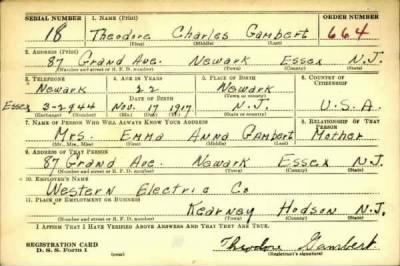 SERIAL NUMBER 1. NAME (Print) ORDER NUMBER
18 Theodore Charles Gambert 664
(First) (Middle) (Last)
2. ADDRESS (Print)
87 Grand Ave. Newark Essex N.J.
(Number and street or R. F. D. number) (Town) (County) (State)
3. TELEPHONE 4. AGE IN YEARS 5. PLACE OF BIRTH 6. COUNTRY OF CITIZENSHIP
Newark 22 Newark
DATE OF BIRTH (Town or county)
Essex 3-2944 Nov. 17 1917 N.J. U.S.A.
(Exchange) (Number) (Mo.) (Day) (Yr.) (State or country)
7. NAME OF PERSON WHO WILL ALWAYS KNOW YOUR ADDRESS 8. RELATIONSHIP OF THAT PERSON
Mrs. Emma Anna Gambert Mother
(Mr., Mrs., Miss) (First) (Middle) (Last)
9. ADDRESS OF THAT PERSON
87 Grand Ave. Newark Essex N.J.
(Number and street or R. F. D. number) (Town) (County) (State)
10. EMPLOYER'S NAME
Western Electric Co
11. PLACE OF EMPLOYMENT OR BUSINESS
Kearney Hudson N.J.
(Number and street or R. F. D. number) (Town) (County) (State)
I AFFIRM THAT I HAVE VERIFIED ABOVE ANSWERS AND THAT THEY ARE TRUE.
REGISTRATION CARD
D. S. S. Form 1 Theodore Gambert
(Registrant's signature)